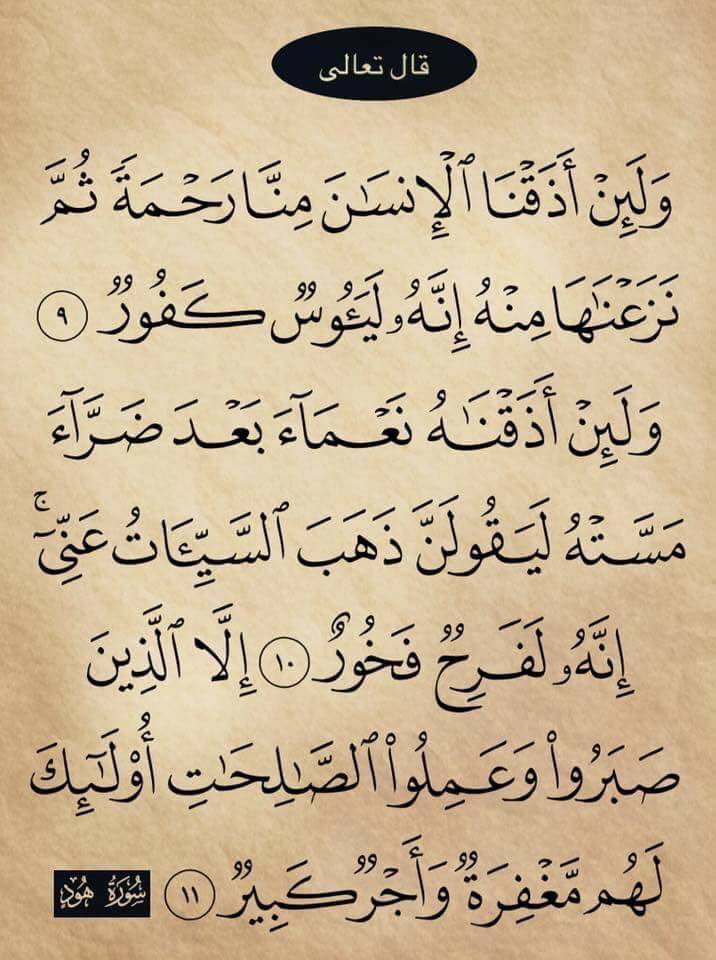 قال تعالى
وَلَئِنْ أَذَقْنَا ٱلْإِنسَٰنَ مِنَّا رَحْمَةً ثُمَّ
نَزَعْنَٰهَا مِنْهُ إِنَّهُۥ لَيَـُٔوسٌ كَفُورٌ ٩
وَلَئِنْ أَذَقْنَٰهُ نَعْمَآءَ بَعْدَ ضَرَّآءَ
مَسَّتْهُ لَيَقُولَنَّ ذَهَبَ ٱلسَّيِّـَٔاتُ عَنِّىٓ ۚ
إِنَّهُۥ لَفَرِحٌ فَخُورٌ ١٠ إِلَّا ٱلَّذِينَ
صَبَرُوا۟ وَعَمِلُوا۟ ٱلصَّٰلِحَٰتِ أُو۟لَٰٓئِكَ
لَهُم مَّغْفِرَةٌ وَأَجْرٌ كَبِيرٌ ١١ سُورَةُ هُودٍ